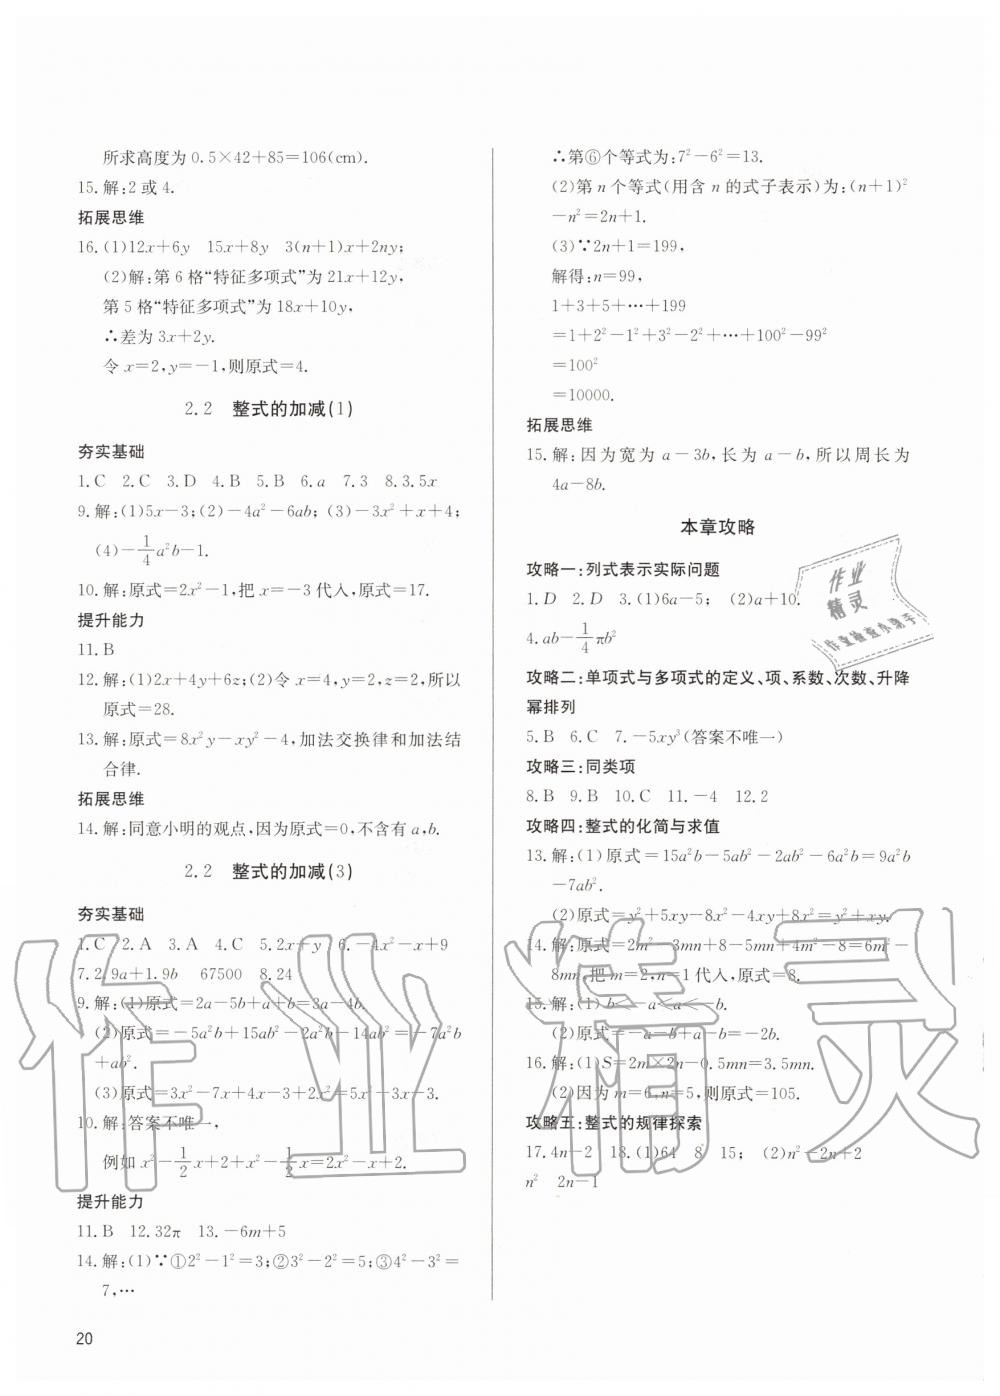 所求高度为 0.5×42+85=106(cm).
15.解:2 或 4.
拓展思维
16.(1)12x+6y 15x+8y 3(n+1)x+2ny;
(2)解:第 6 格“特征多项式”为 21x+12y,
第 5 格“特征多项式”为 18x+10y,
∴差为 3x+2y.
令 x=2,y=-1,则原式=4.
2.2 整式的加减(1)
夯实基础
1.C 2.C 3.D 4.B 5.B 6.a 7.3 8.3.5x
9.解:(1)5x-3;(2)-4a²-6ab;(3)-3x²+x+4;
(4)-1/4a²b-1.
10.解:原式=2x²-1,把 x=-3 代入,原式=17.
提升能力
11.B
12.解:(1)2x+4y+6z;(2)令 x=4,y=2,z=2,所以
原式=28.
13.解:原式=8x²y-xy²-4,加法交换律和加法结
合律.
拓展思维
14.解:同意小明的观点,因为原式=0,不含有 a,b.
2.2 整式的加减(3)
夯实基础
1.C 2.A 3.A 4.C 5.2x+y 6.-4x²-x+9
7.2.9a+1.9b 67500 8.24
9.解:(1)原式=2a-5b+a+b=3a-4b.
(2)原式=-5a²b+15ab²-2a²b-14ab²=-7a²b
+ab².
(3)原式=3x²-7x+4x-3+2x²=5x²-3x-3.
10.解:答案不唯一,
例如 x²-1/2x+2+x²-1/2x=2x²-x+2.
提升能力
11.B 12.32π 13.-6m+5
14.解:(1)∵①2²-1²=3;②3²-2²=5;③4²-3²=
7,…
20
∴第⑥个等式为:7²-6²=13.
(2)第 n 个等式(用含 n 的式子表示)为:(n+1)²
-n²=2n+1.
(3)∵2n+1=199,
解得:n=99,
1+3+5+…+199
=1+2²-1²+3²-2²+…+100²-99²
=100²
=10000.
拓展思维
15.解:因为宽为 a-3b,长为 a-b,所以周长为
4a-8b.
本章攻略
攻略一:列式表示实际问题
1.D 2.D 3.(1)6a-5; (2)a+10.
4.ab-1/4πb²
攻略二:单项式与多项式的定义、项、系数、次数、升降
幂排列
5.B 6.C 7.-5xy³(答案不唯一)
攻略三:同类项
8.B 9.B 10.C 11.-4 12.2
攻略四:整式的化简与求值
13.解:(1)原式=15a²b-5ab²-2ab²-6a²b=9a²b
-7ab².
(2)原式=y²+5xy-8x²-4xy+8x²=y²+xy.
14.解:原式=2m²-3mn+8-5mn+4m²-8=6m²-
8mn,把 m=2,n=1 代入,原式=8.
15.解:(1)b<-a<a<-b.
(2)原式=-a-b+a-b=-2b.
16.解:(1)S=2m×2n-0.5mn=3.5mn.
(2)因为 m=6,n=5,则原式=105.
攻略五:整式的规律探索
17.4n-2 18.(1)64 8 15; (2)n²-2n+2
n² 2n-1
作业
精灵
作业检查小帮手
作业精灵